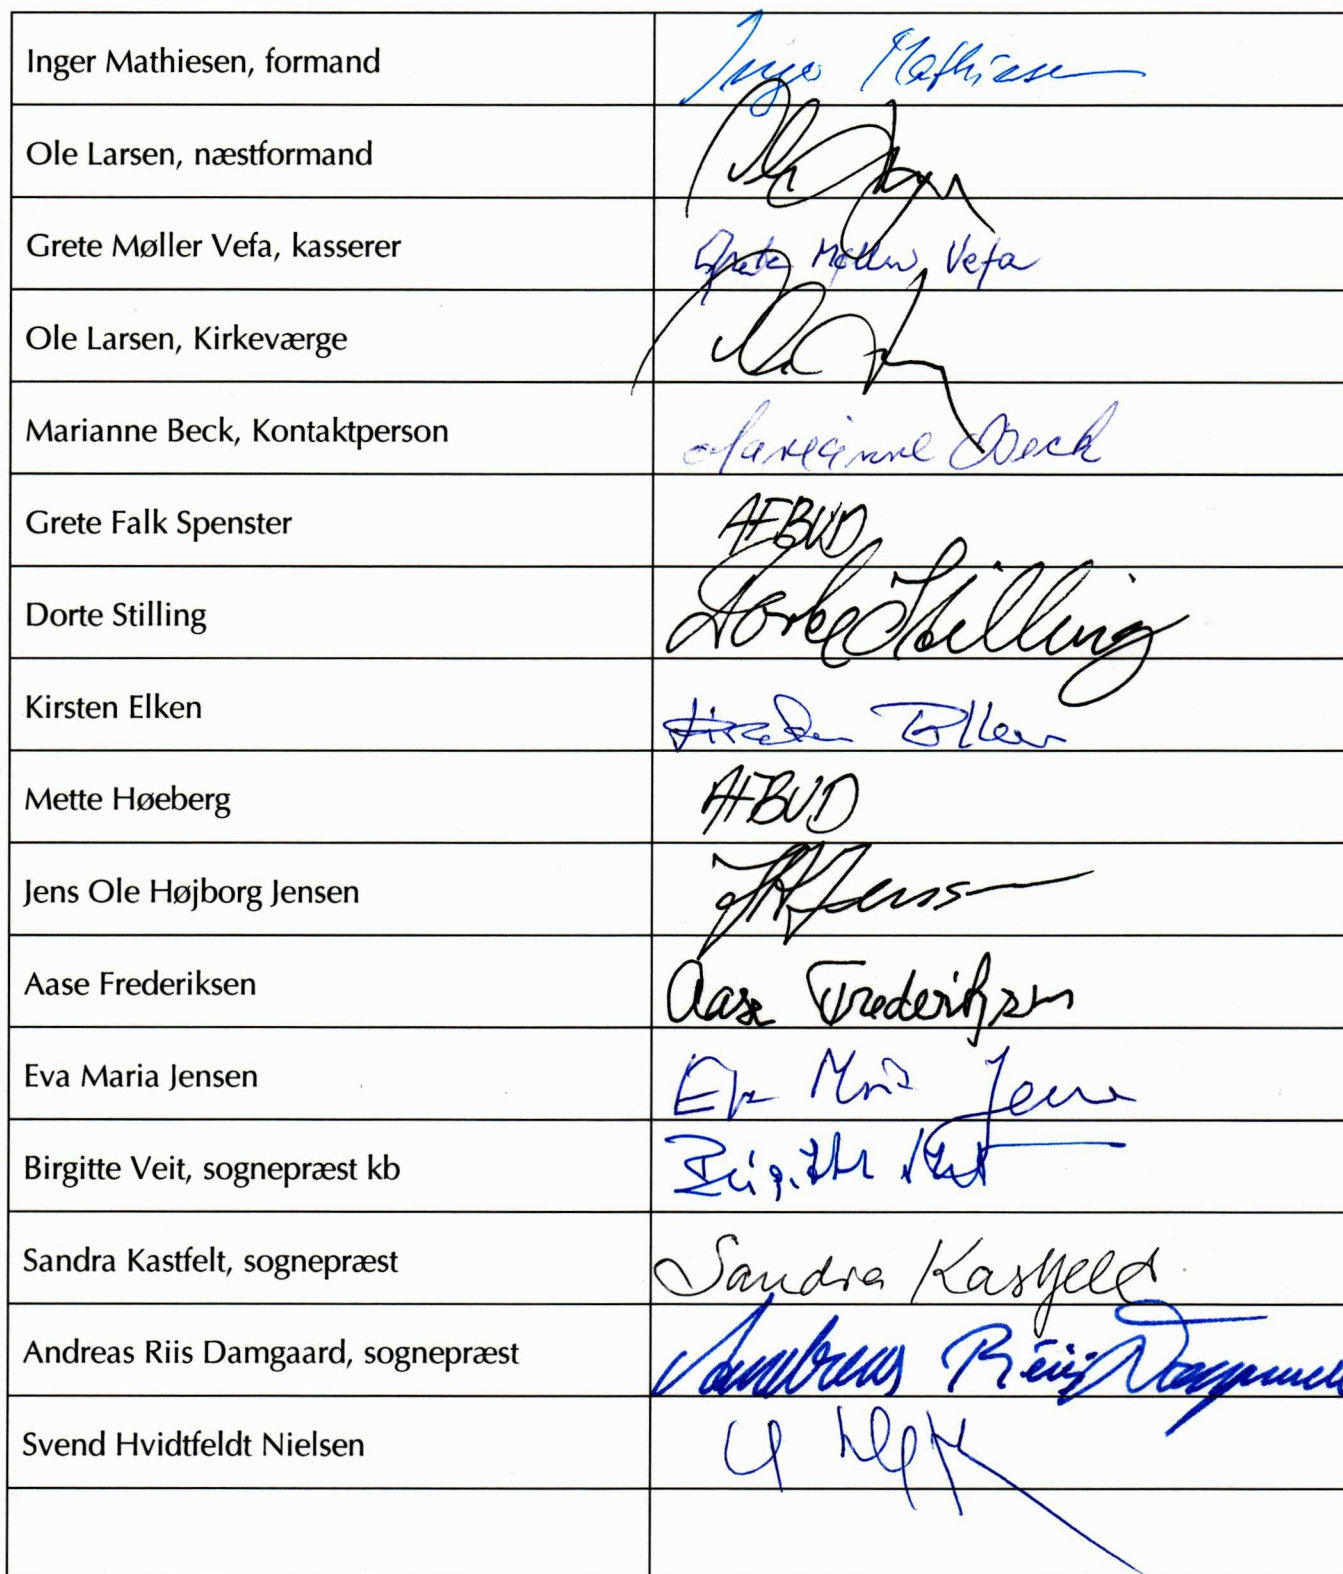 Inger Mathiesen, formand Inger Mathiesen
Ole Larsen, næstformand
Grete Møller Vefa, kasserer Grete Møller Vefa
Ole Larsen, Kirkeværge
Marianne Beck, Kontaktperson Marianne Beck
Grete Falk Spenster AFBUD
Dorte Stilling Dorte Stilling
Kirsten Elken Kirsten Elken
Mette Høeberg AFBUD
Jens Ole Højborg Jensen
Aase Frederiksen Aase Frederiksen
Eva Maria Jensen Eva Maria Jensen
Birgitte Veit, sognepræst kb Birgitte Veit
Sandra Kastfelt, sognepræst Sandra Kastfelt
Andreas Riis Damgaard, sognepræst Andreas Riis Damgaard
Svend Hvidtfeldt Nielsen